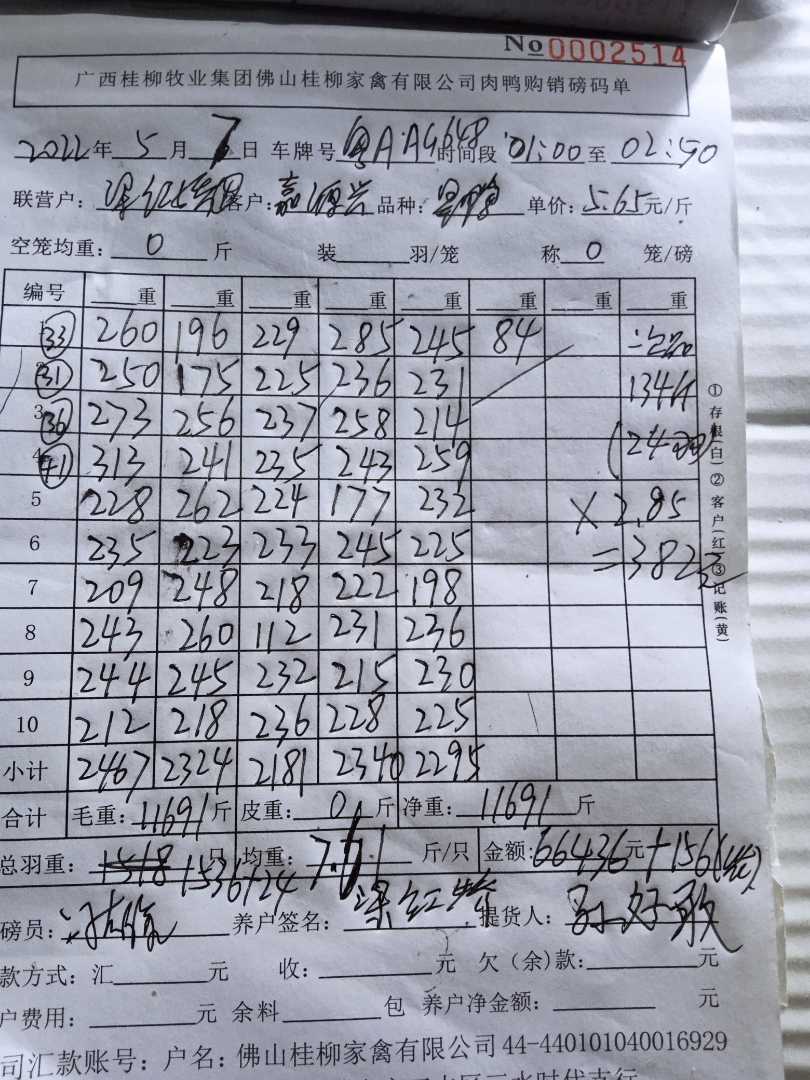 No0002514
广西桂柳牧业集团佛山桂柳家禽有限公司肉鸭购销磅码单
2022年 5 月 7 日 车牌号 粤A·AG648 时间段 01:00 至 02:50
联营户: 客户: 嘉源兴 品种: 单价: 5.65 元/斤
空笼均重: 0 斤 装 羽/笼 称 0 笼/磅
编号 重 重 重 重 重 重 重 重
1 (33) 260 196 229 285 245 84
2 (31) 250 175 225 236 231 134斤
3 (36) 273 256 237 258 214 (24
4 (41) 313 241 235 243 259
5 228 262 224 177 232 × 2.85
6 235 223 233 245 225 =382
7 209 248 218 222 198
8 243 260 112 231 236
9 244 245 232 215 230
10 212 218 236 228 225
小计 2467 2324 2181 2340 2295
合计 毛重: 11691 斤 皮重: 0 斤 净重: 11691 斤
总羽重: 1518 只 1536+24 均重: 7.61 斤/只 金额: 66436 元 +156
磅员: 养户签名: 梁红 提货人: 好敢
款方式: 汇 元 收: 元 欠(余)款: 元
户费用: 元 余料 包 养户净金额: 元
司汇款账号: 户名: 佛山桂柳家禽有限公司 44-440101040016929
三水时代支行
①存根(白)②客户(红)③记账(黄)